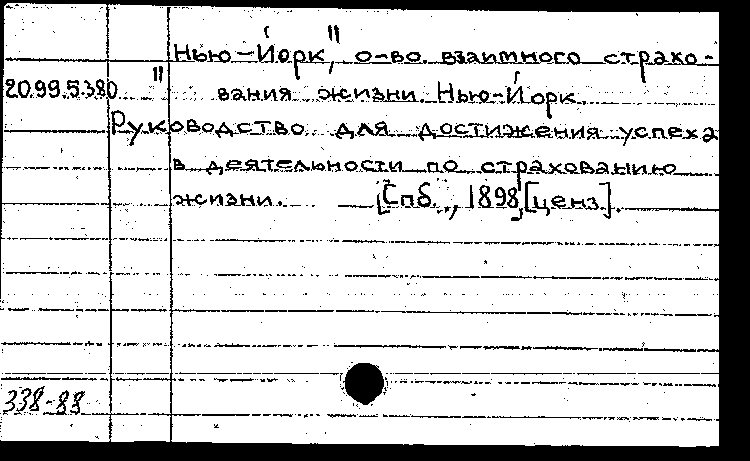 "Нью-Йорк", о-во взаимного страхо-
2099.5380 вания жизни. Нью-Йорк.
Руководство для достижения успеха
в деятельности по страхованию
жизни. [Спб., 1898, [ценз].
338-88